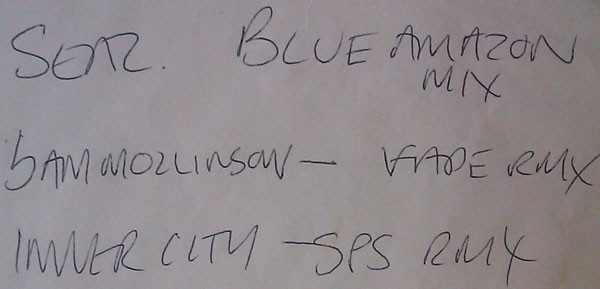 BLUE AMAZON
MIX
SAM MOLLINSON — FADE RMX
INNER CITY — SPS RMX